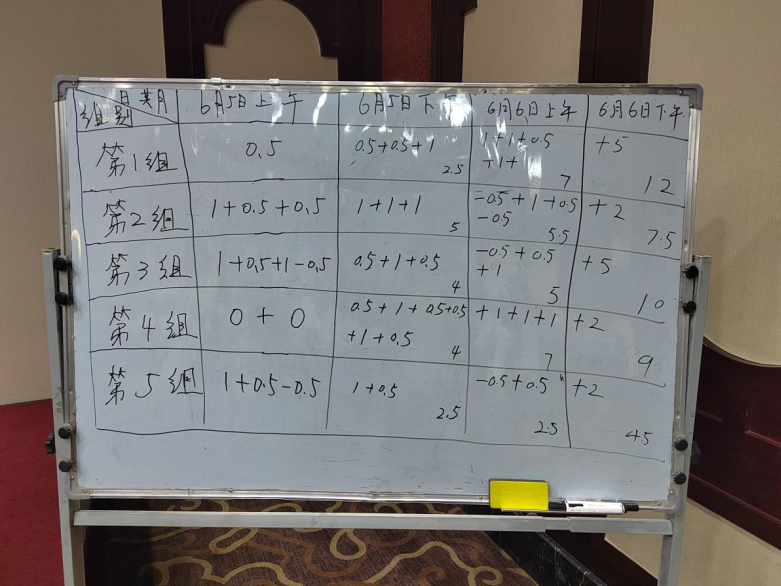 日期 6月5日上午 6月5日下午 6月6日上午 6月6日下午
组别
第1组 0.5 0.5+0.5+1 1+1+0.5 +5
+1+1
2.5 7 12
第2组 1+0.5+0.5 1+1+1 -0.5+1+0.5 +2
-0.5
5 5.5 7.5
第3组 1+0.5+1-0.5 0.5+1+0.5 -0.5+0.5 +5
+1
4 5 10
第4组 0+0 0.5+1+0.5+0.5 +1+1+1 +2
+1+0.5
4 7 9
第5组 1+0.5-0.5 1+0.5 -0.5+0.5 +2
2.5 2.5 4.5